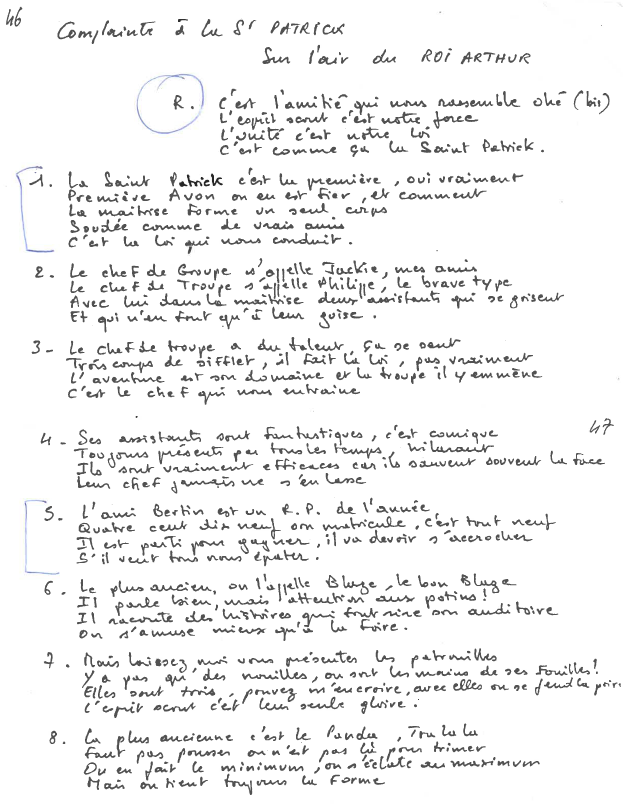 46
Complainte à la St PATRICK
Sur l'air du ROI ARTHUR
R. C'est l'amitié qui nous rassemble ohé (bis)
L'esprit scout c'est notre force
L'unité c'est notre loi
C'est comme ça la Saint Patrick.
1. La Saint Patrick c'est la première, oui vraiment
Première Avon on en est fier, et comment
La maîtrise forme un seul corps
Soudée comme de vrais amis
C'est la loi qui nous conduit.
2. Le chef de Groupe s'appelle Jackie, mes amis
Le chef de Troupe s'appelle Philippe, le brave type
Avec lui dans la maîtrise deux assistants qui se grisent
Et qui n'en font qu'à leur guise.
3- Le chef de troupe a du talent, ça se sent
Trois coups de sifflet, il fait la loi, pas vraiment
L'aventure est son domaine et la troupe il y emmène
C'est le chef qui nous entraine
47
4- Ses assistants sont fantastiques, c'est comique
Toujours présents par tous les temps, hilarant
Ils sont vraiment efficaces car ils sauvent souvent la face
Leur chef jamais ne s'en lasse
5. L'ami Bertin est un R.P. de l'année,
Quatre cent dix neuf son matricule, c'est tout neuf
Il est parti pour gagner, il va devoir s'accrocher
S'il veut tous nous épater.
6. Le plus ancien, on l'appelle Bluge, le bon Bluge
Il parle bien, mais attention aux potins!
Il raconte des histoires qui font rire son auditoire
On s'amuse mieux qu'à la Foire.
7. Mais laissez moi vous présenter les patrouilles
Y a pas qu' des nouilles, ou sont les mains de ses fouilles!
Elles sont trois, pouvez m'en croire, avec elles on se fend la poire
L'esprit scout c'est leur seule gloire.
8. La plus ancienne c'est le Panda, Tralala
Faut pas pousser on n'est pas là pour trimer
On en fait le minimum, on s'éclate au maximum
Mais on tient toujours la forme